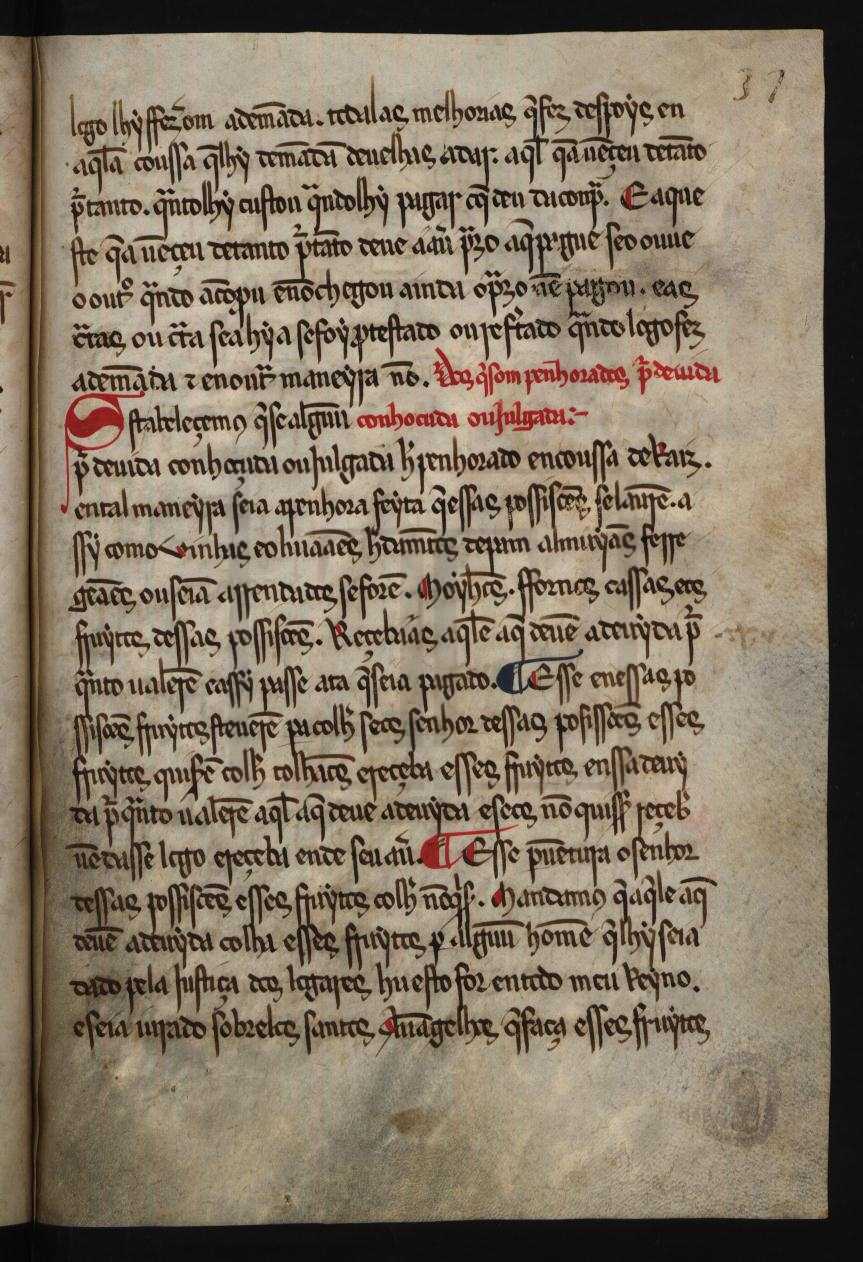 37
logo lhy ffez̃om a demãda. τ das melhorias q̃ fez despoys en
aq̃la coussa q̃ lhy demãdã deue lhas a dar. aq̃l q̃ a uẽçeu de tãto
p̃ tanto. quãto lhy custou quãdo lhy pagar
ste q̃ a uẽçeu de tanto p̃ tãto deue a auer
o out̃o quãdo a cõprou e nõ chegou ainda o p̃zo nẽ pagou. e as
c̃tas ou c̃ta se a hy a se foy p̃testado ou refertado quãdo logo fez
a demãda τ en out̃ maneyra nõ. Dos q̃ som penhorados p̃ deuida
Stabeleçemos q̃ se alguũ conhoçuda ou julgada:-
p̃ deuida conhoçuda ou julgada h̃ penhorado en coussa de Raiz.
en tal maneyra seia a penhora feyta q̃ essas possissões se laurarẽ. a
ssy como vinhas e oliuaães h̃damẽtos de pam almuynas ferre
geães ou seiã arrendados se forẽ. Moyh̃os. ffornos cassas e os
fruytos dessas possissões. Reçebaas aq̃le a q̃ deuẽ a deuyda p̃
quãto ualerẽ e assy passe ata q̃ seia pagado. ¶ E sse en essas po
ssissões ffruytos steuerẽ pa colh̃ se os senhor dessas possissões esses
ffruytos quisẽ colh̃ colhaos e reçeba esses ffruytos en ssa deuy
da p̃ quãto ualerẽ aq̃l a q̃ deue a deuyda e se os nõ quiss̃ reçeb̃
uẽdasse logo e reçeba ende seu auer̃. ¶ E sse p̃uẽtura o senhor
dessas possissões esses fruytos colh̃ nõ q̃s̃. Mandamos q̃ aq̃le a q̃
deuẽ a deuyda colha esses ffruytos p alguũ homẽ q̃ lhy seia
dado pela justiça dos logares hu esto for en todo meu Reyno.
e seia iurado sobrelos santos Auãgelhos q̃ faça esses ffruytos